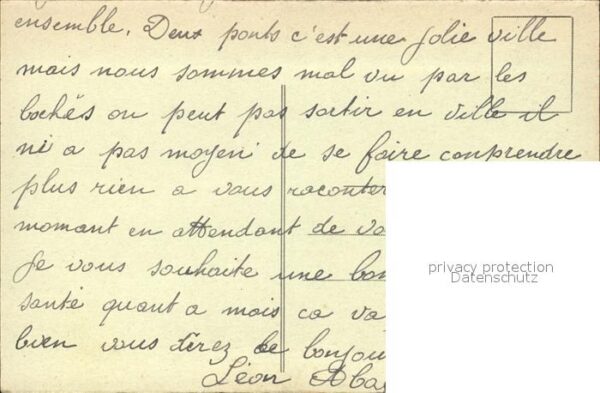 ensemble. Deux ponts c'est une jolie ville
mais nous sommes mal vu par les
bochés on peut pas sortir en ville il
ni a pas moyen de se faire conprendre
plus rien a vous raconter
momant en attendant de vo
Je vous souhaite une bon
santé quant a mois ca va
bien vous direz le bonjou
Léon
privacy protection
Datenschutz